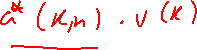 a* (k,n) · v (k)